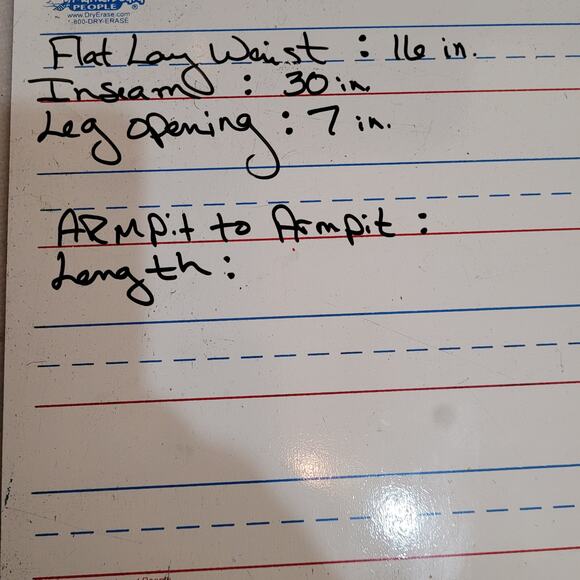 PEOPLE®
www.DryErase.com
800-DRY-ERASE
Flat Lay Waist : 16 in.
Inseam : 30 in
Leg opening : 7 in.
ARMpit to Armpit :
Length :